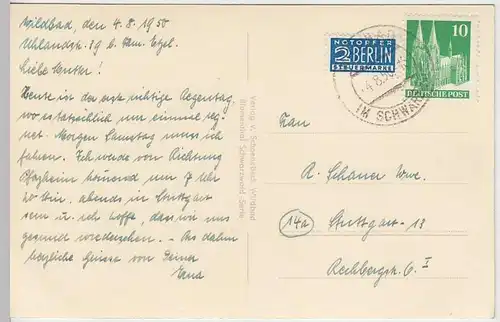 Wildbad, den 4.8.1950
Uhlandstr. 19 b. Fam. Etzel.
Liebe Mutter!
Heute ist der erste richtige Regentag,
wo es tatsächlich um einmal reg-
net. Morgen Samstag muss ich
fahren. Ich werde von Richtung
Pforzheim kommend um 7 Uhr
20 Min. abends in Stuttgart
sein u. ich hoffe, dass wir uns
gesund wiedersehen. - Bis dahin
herzliche Grüsse von Deiner
Erna
Verlag V. Schwenkbach Wildbad
Schwarzwald Serie
NOTOPFER
2 BERLIN
STEUERMARKE
10
DEUTSCHE POST
4.8.50
IM SCHWAR
Frau
A. Schauer Wwe.
(14a) Stuttgart-13
Rechbergstr. 6 I